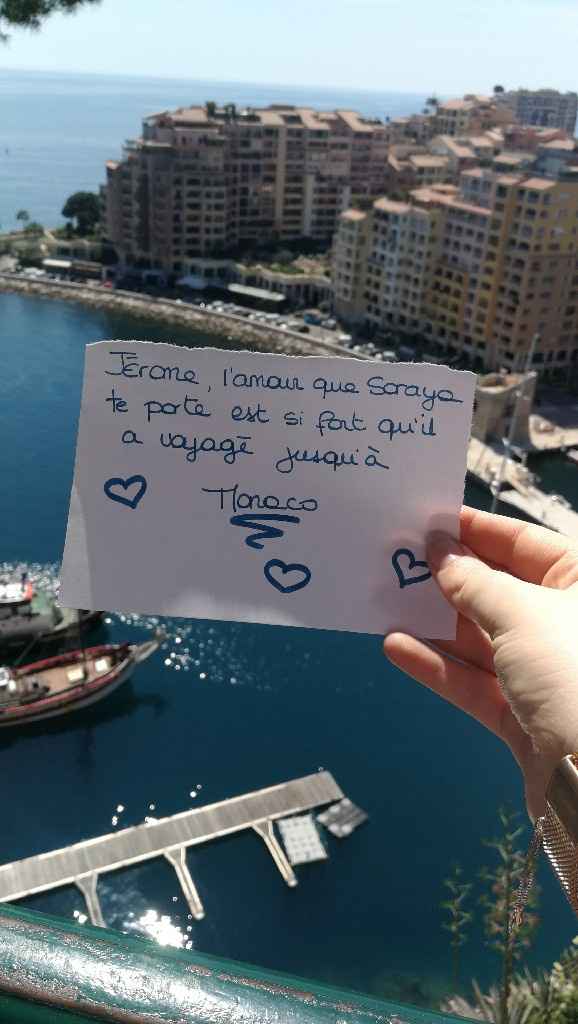 Jérome, l'amour que Soraya
te porte est si fort qu'il
a voyagé jusqu'à
Monaco